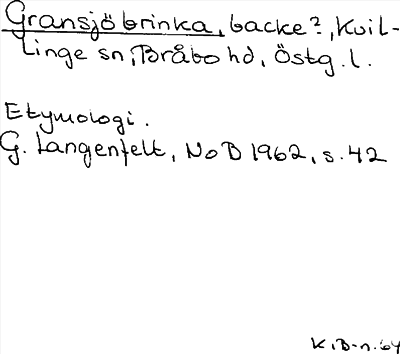 Gransjöbrinka, backe?, Kvil-
linge sn, Bråbo hd, Östg. l.
Etymologi.
G. Langenfelt, NoB 1962, s. 42
K.B-n. 64